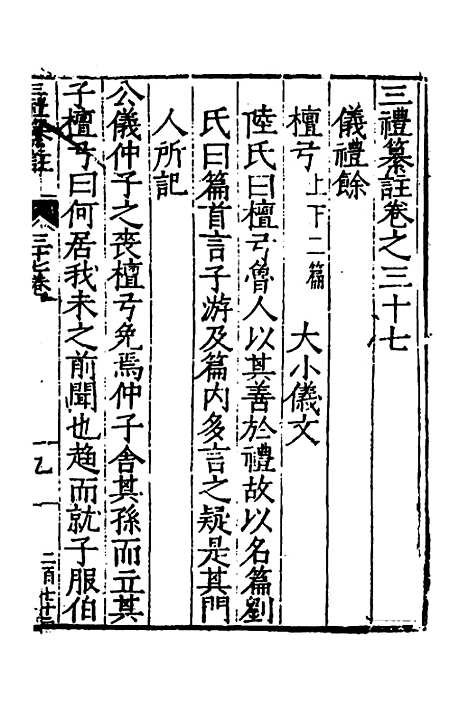 三禮纂註卷之三十七
儀禮餘
檀弓上下二篇 大小儀文
陸氏曰檀弓魯人以其善於禮故以名篇劉
氏曰篇首言子游及篇内多言之疑是其門
人所記
公儀仲子之喪檀弓免焉仲子舍其孫而立其
子檀弓曰何居我未之前聞也趨而就子服伯
三禮纂註 三十七卷 一 乙